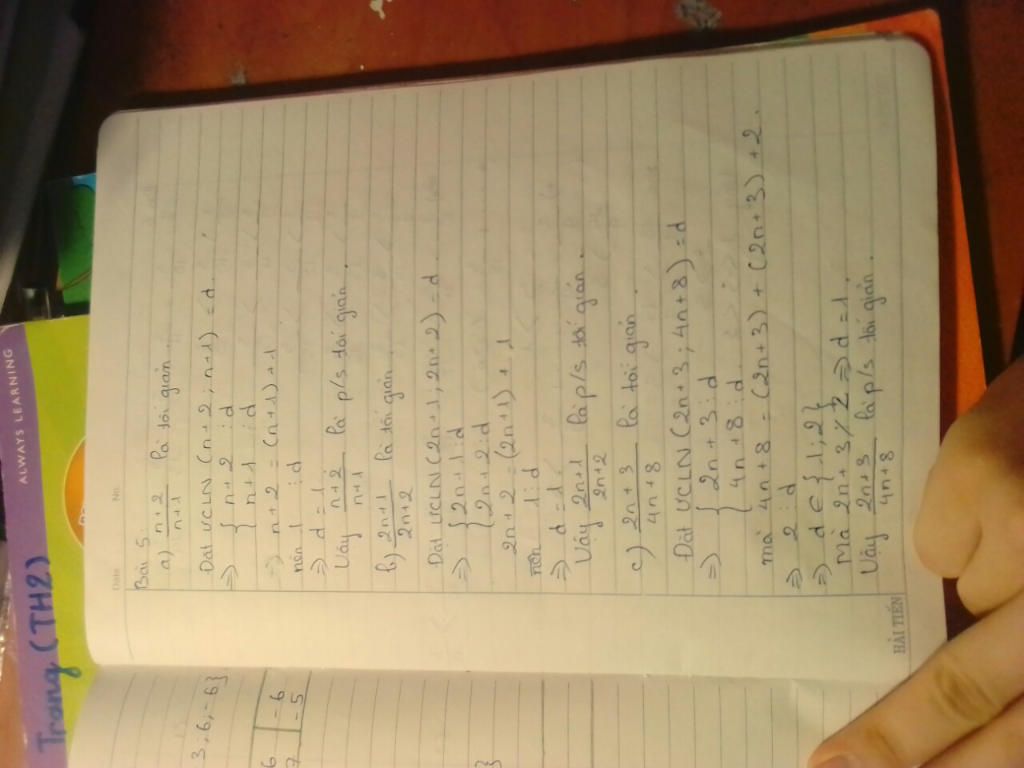 ALWAYS LEARNING
Trang (TH2)
Date
No.
Bài 5:
a) n+2/n+1 là tối giản.
Đặt ƯCLN (n+2; n+1) = d.
=> { n+2 ⋮ d
n+1 ⋮ d
=> n+2 = (n+1)+1
nên 1 ⋮ d
=> d = 1
Vậy n+2/n+1 là p/s tối giản.
b) 2n+1/2n+2 là tối giản.
Đặt ƯCLN (2n+1, 2n+2) = d.
=> { 2n+1 ⋮ d
2n+2 ⋮ d
2n+2 = (2n+1) + 1
nên 1 ⋮ d
=> d = 1
Vậy 2n+1/2n+2 là p/s tối giản.
c) 2n+3/4n+8 là tối giản.
Đặt ƯCLN (2n+3; 4n+8) = d
=> { 2n+3 ⋮ d
4n+8 ⋮ d.
mà 4n+8 = (2n+3) + (2n+3) + 2.
=> 2 ⋮ d
=> d ∈ {1; 2}
Mà 2n+3 ⋮̸ 2 => d = 1.
Vậy 2n+3/4n+8 là p/s tối giản.
HẢI TIẾN
3, 6, -6}
6 | -6
7 | -5
}